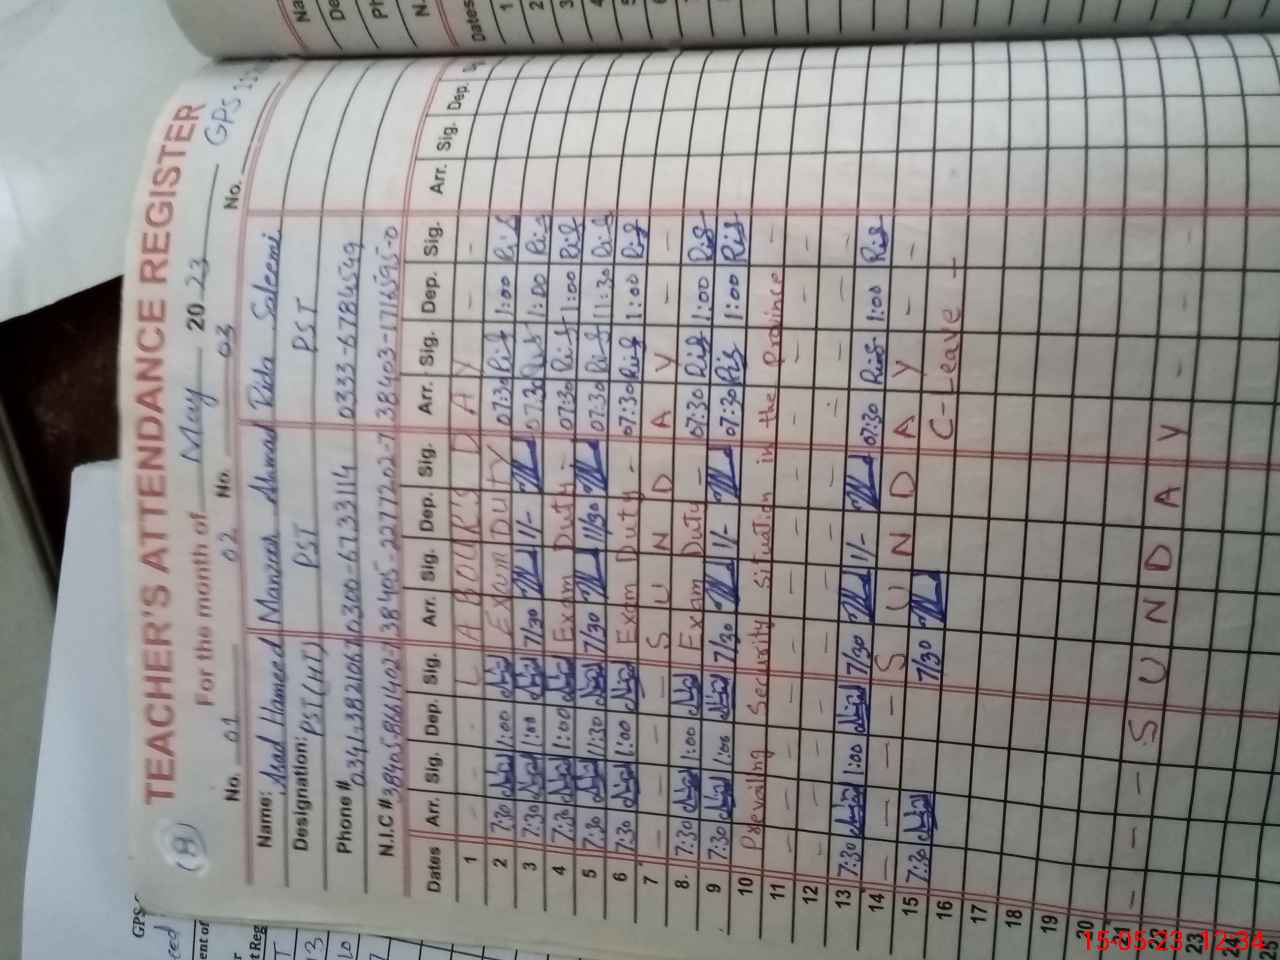 (A)
TEACHER'S ATTENDANCE REGISTER
For the month of May 2023 GPS
No. 01 No. 02 No. 03 No.
Name: Asad Hameed Manzoor Ahmad Rida Saleemi
Designation: PST (HT) PST PST
Phone # 0300-6733114 0333-6784599
N.I.C #
Dates Arr. Sig. Dep. Sig. Arr. Sig. Dep. Sig. Arr. Sig. Dep. Sig. Arr. Sig. Dep.
1 - - - LABOUR'S DAY - -
2 7:30 1:00 Exam DUTY 07:30 Rif 1:00 Rif
3 7:30 1:00 7/30 1/- 07:30 Rif 1:00 Rif
4 7:30 1:00 Exam Duty - 07:30 Rif 1:00 Rif
5 7:30 11:30 7/30 11/30 07:30 Rif 11:30 Rif
6 7:30 1:00 Exam Duty - 07:30 Rif 1:00 Rif
7 - - - - SUNDAY - -
8. 7:30 1:00 Exam Duty - 07:30 Rif 1:00 Rif
9 7:30 1:00 7/30 1/- 07:30 Rif 1:00 Rif
10 Prevailing Security Situation in the Province - -
11 - - - - - - - - - - - -
12 - - - - - - - - - - - -
13 7:30 1:00 7/30 1/- 07:30 Rif 1:00 Rif
14 - - - - SUNDAY - -
15 7:30 7/30 C-Leave -
16
17
18
19
20
21 - - - SUNDAY - - -
22
23
24
25
15-05-23 12:34